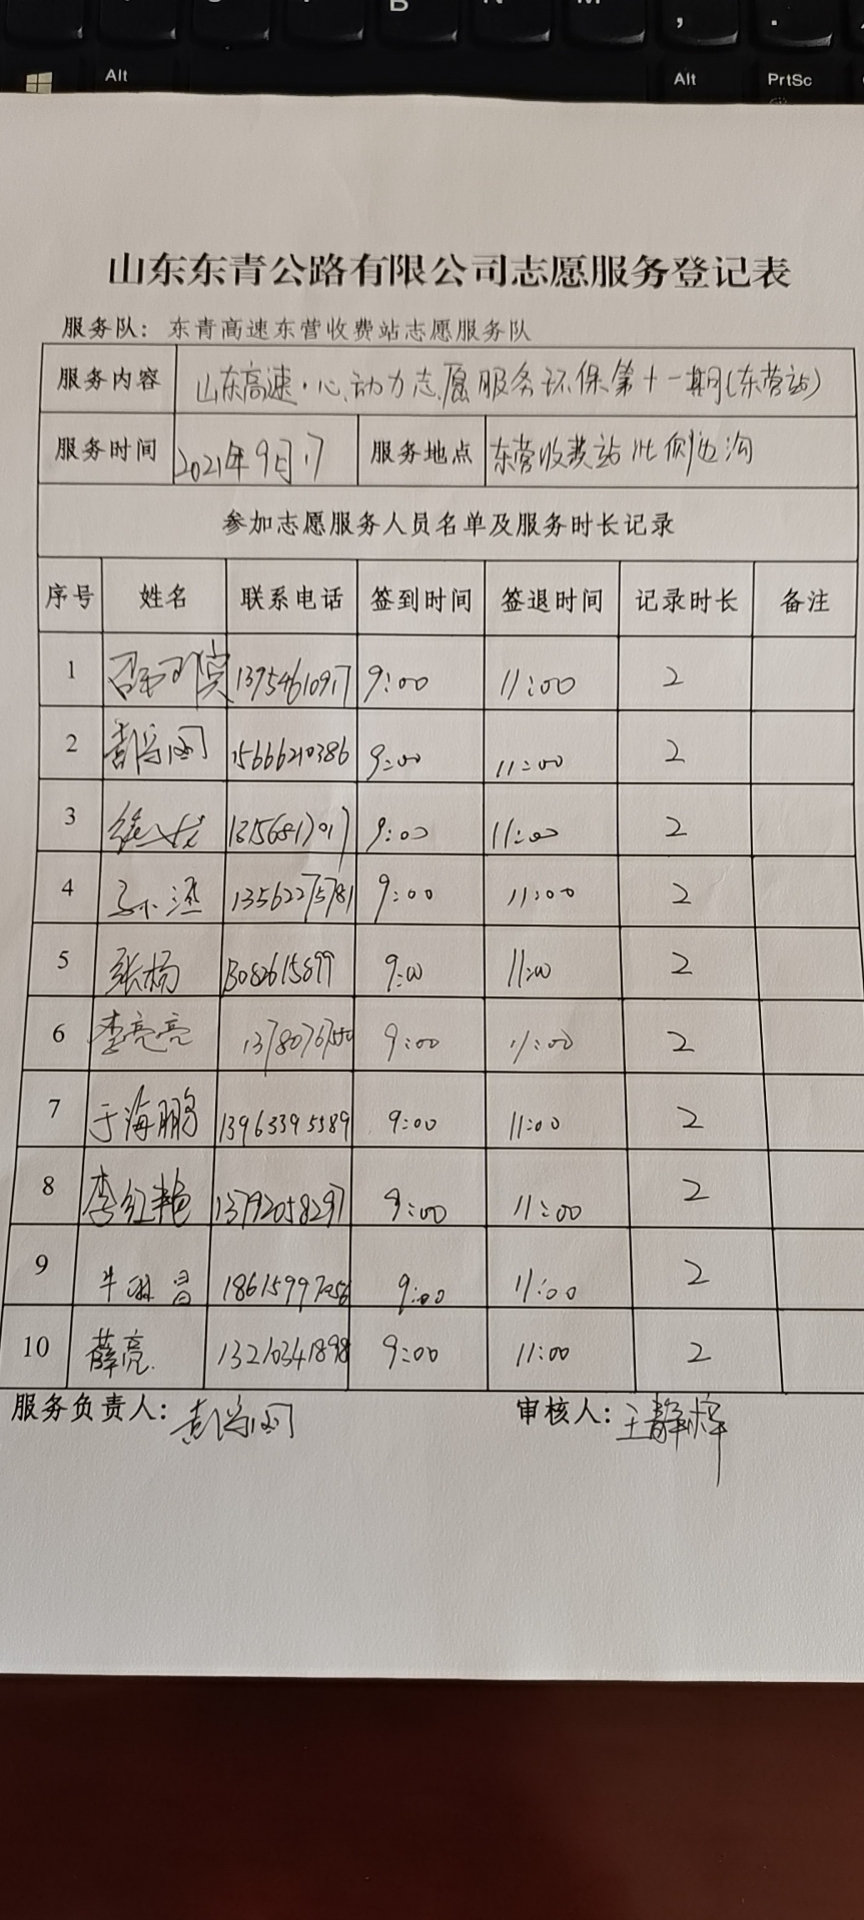 Alt Alt PrtSc
山东东青公路有限公司志愿服务登记表
服务队：东青高速东营收费站志愿服务队
服务内容 山东高速·心动力志愿服务环保第十一期(东营站)
服务时间 2021年9月17 服务地点 东营收费站北侧边沟
参加志愿服务人员名单及服务时长记录
序号 姓名 联系电话 签到时间 签退时间 记录时长 备注
1 13954610917 9:00 11:00 2
2 15666210386 9:00 11:00 2
3 9:00 11:00 2
4 13562275781 9:00 11:00 2
5 张杨 13082615899 9:00 11:00 2
6 李亮亮 9:00 11:00 2
7 于海鹏 13963395589 9:00 11:00 2
8 李红艳 13792058297 9:00 11:00 2
9 9:00 11:00 2
10 薛亮 13210341898 9:00 11:00 2
服务负责人： 审核人：